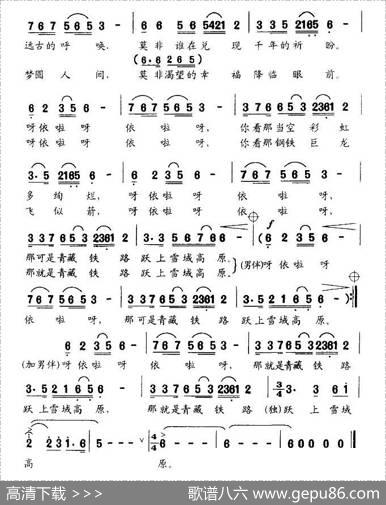 7 6 7 5 6 5 3 - | 6 6 5 6 5 5421 2 | 3 3 5 2165 6 - |
远古的呼 唤, 莫非 谁在兑 现 千年的祈 盼。
(6·6 2 6 5)
梦圆 人 间, 莫非渴望的幸 福降临 眼 前。
6 2 3 5 6 - | 7 6 7 5 6 5 3 - | 3 3 7 6 6 5 3 2361 2 |
呀依 啦 呀 依 啦 呀, 你看那当空 彩 虹
呀依 啦 呀 依 啦 呀, 你看那钢铁 巨 龙
3·5 2165 6 - | 6 2 3 5 6 - | 7 6 7 5 6 5 3 - |
多 绚 烂, 呀依 啦 呀 依 啦 呀,
飞 似 箭, 呀依 啦 呀 依 啦 呀,
3 3 7 6 5 3 2361 2 | 3·3 5 6 7 6 6 - | (6 2 3 5 6 - |
f
那可是青藏 铁 路 跃上雪域高 原。
那就是青藏 铁 路 跃上雪域高 原。
(男伴)呀 依啦 呀
7 6 7 5 6 5 3 - | 3 3 7 6 5 3 2361 2 | 3·5 2 1 6 5 6 - ) :||
依 啦 呀, 那可是青藏 铁 路 跃上雪域高 原。
6 2 3 5 6 - | 7 6 7 5 6 5 3 - | 3 3 7 6 5 3 2361 2 |
(加男伴)呀依 啦 呀 依 啦 呀, 那就是青藏 铁 路
3·5 2 1 6 5 6 - | 3 3 7 6 5 3 2361 2 | 3/4 3· 3 6 1 |
跃 上雪域高 原, 那就是青藏 铁 路 (独)跃 上 雪 域
2 2 2 3 1·6 | 5 - - - | 4/4 6 - - - | 6 - - - | 6 0 0 0 0 ||
高 原。
高清下载 >>>
歌谱八六 www.gepu86.com